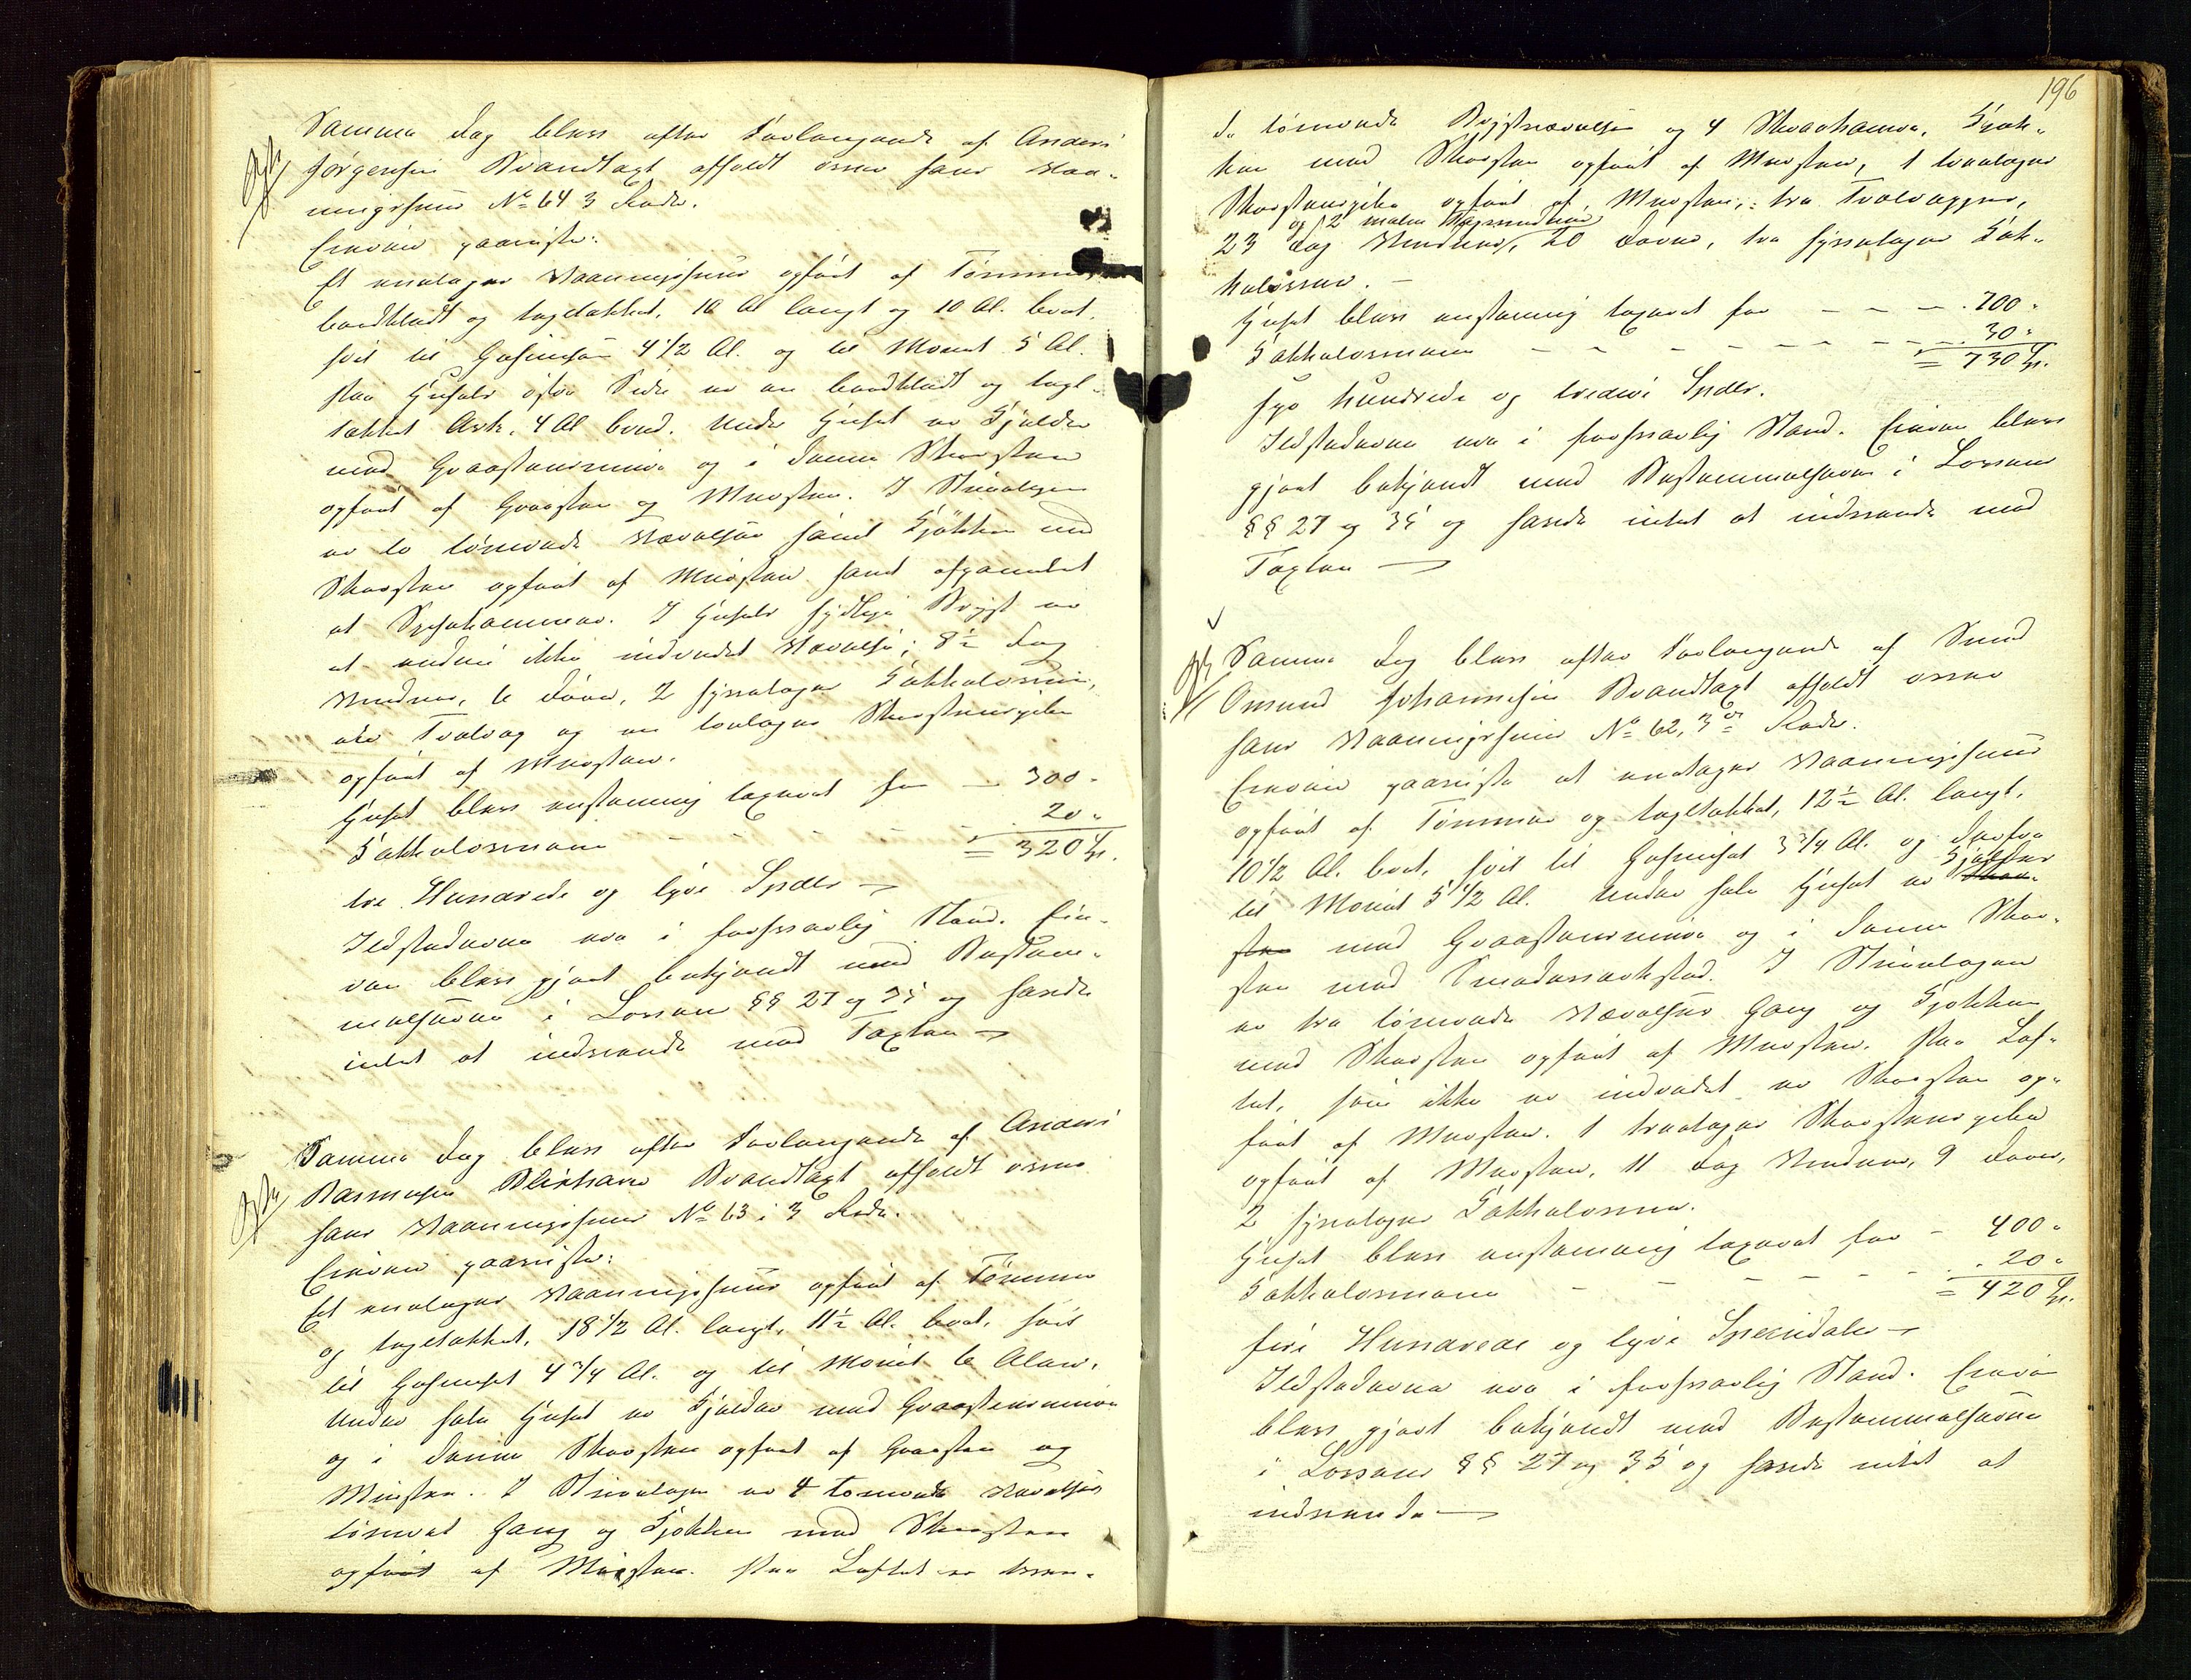 Samme Dag blev efter Forlangende af Anders
Jørgensen Brandtaxt afholdt over hans Vaa-
ningshuus No 64 3 Rode.
Eieren paaviste:
Et enetages Vaaningshuus opført af Tømmer
bordklædt og tagtækket, 10 Al langt og 10 Al. bredt,
høit til Gesimsen 4 1/2 Al. og til Mønet 5 Al.
Paa Husets østre Side er en bordklædt og tagt-
tækket Ark, 4 Al bred. Under Huset er Kjelder
med Graasteensmure og i denne Skorsten
opført af Graasten og Mursten. I Stueetagen
er to tømrede Værelser samt Kjøkken med
Skorsten opført af Mursten samt afpanelet
et Spisekammer. I Husets sydlige Bryst er
et endnu ikke indredet Værelse; 8 1/2 Fag
Vinduer, 6 Døre, 2 søvnetages Kakkelovne,
een Trætrap og en toetages Skorsteenspibe
opført af Mursten.
Huset blev enstemmig taxeret for — 300 "
Kakkelovnene - - - - 20 "
= 320 Sp.
tre Hundrede og tyve Spdlr
Ildstederne ere i forsvarlig Stand. Eie-
ren blev gjort bekjendt med Bestem-
melserne i Lovens §§ 27 og 35 og havde
intet at indvende mod Taxten
Samme Dag blev efter Forlangende af Anders
Rasmusen Blixhavn Brandtaxt afholdt over
hans Vaaningshuus No 63 i 3 Rode.
Eieren paaviste:
Et enetages Vaaningshuus opført af Tømmer
og tagtækket, 18 1/2 Al. langt, 11 1/2 Al. bredt, høit
til Gesimset 4 3/4 Al. og til Mønet 6 Alen.
Under hele Huset er Kjelder med Graasteensmure
og i denne Skorsten opført af Graasten og
Mursten. I Stueetagen er 4 tømrede Værelser
tømret Gang og Kjøkken med Skorsten
opført af Mursten. Paa Loftet er tven-
196
de tømrede Brystværelser og 4 Skraakamre, Kjøk-
ken med Skorsten opført af Mursten, 1 treetages
Skorsteenspibe opført af Mursten, tre Trætrapper,
og 2 malm Tagvinduer
23 Fag Vinduer, 20 Døre, tre søvnetages Kak-
kelovne.
Huset blev enstemmig taxeret for - - - 700 "
Kakkelovnene - - - - - - - 30 "
= 730 Sp.
syv hundrede og tredive Spdlr.
Ildstederne ere i forsvarlig Stand. Eieren blev
gjort bekjendt med Bestemmelserne i Lovens
§§ 27 og 35 og havde intet at indvende mod
Taxten
Samme Dag blev efter Forlangende af Smed
Omund Johannesen Brandtaxt afholdt over
hans Vaaningshuus No 62, 3de Rode.
Eieren paaviste et enetages Vaaningshuus
opført af Tømmer og tagtækket, 12 1/2 Al. langt,
10 1/2 Al. bredt, høit til Gesimset 3 3/4 Al. og derfra
til Mønet 5 1/2 Al. Under hele Huset er Skor- Kjelder
sten med Graasteensmure og i denne Skor-
sten med Smedeværksted. I Stueetagen
er tre tømrede Værelser Gang og Kjøkken
med Skorsten opført af Mursten. Paa Lof-
tet, som ikke er indredet er Skorsten op-
ført af Mursten. 1 treetages Skorsteenspibe
opført af Mursten, 11 Fag Vinduer, 9 Døre,
2 søvnetages Kakkelovne.
Huset blev enstemmig taxeret for - 400 "
Kakkelovnene - - - - - 20 "
= 420 Sp.
fire Hundrede og tyve Speciedaler
Ildstederne ere i forsvarlig Stand. Eieren
blev gjort bekjendt med Bestemmelserne
i Lovens §§ 27 og 35 og havde intet at
indvende